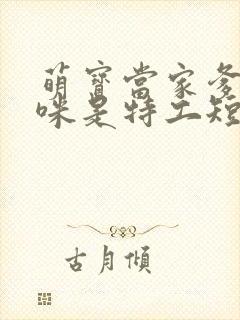 萌寶當家爹
咪是特工短
古月傾